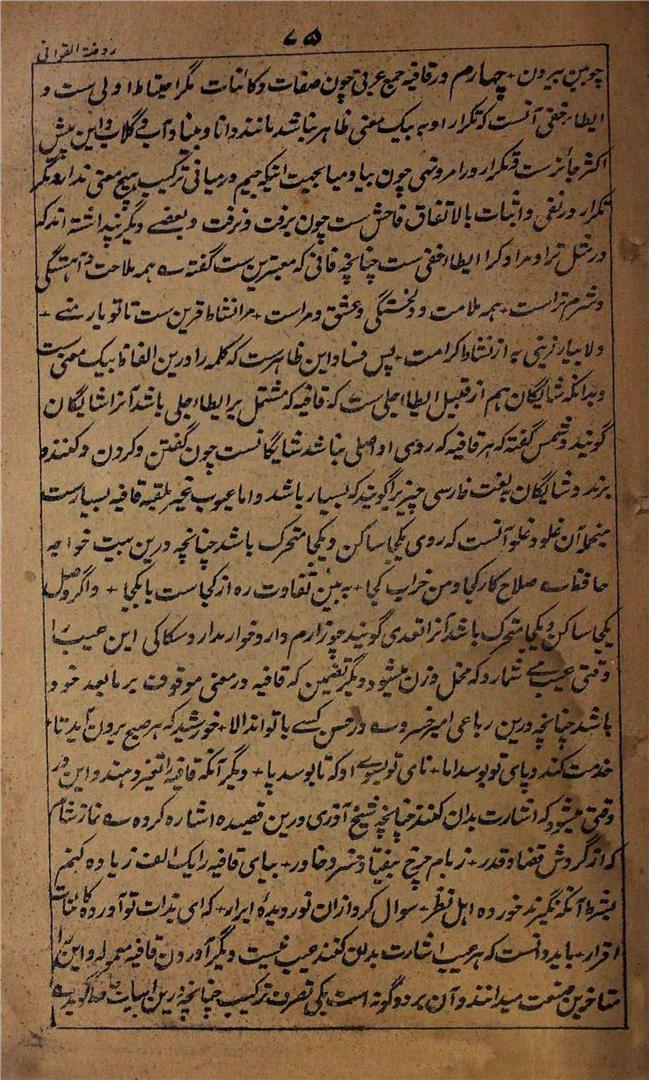 روضة القوافی
۷۵
چوبین بیرون + چهارم در قافیه جمع عربی چون صفات و کائنات مگر احتیاط اولی ست و
ایطاء خفی آنست که تکرار او به یک معنی ظاهر نباشد مانند دانا و بینا و آب و گلاب و این بیش
اکثر جائزست و تکرار در امر و نهی چون بیا و میا بجهت اینکه میم در میانی ترکیب هیچ معنی ندارد و مگر
تکرار در نفی و اثبات بالاتفاق فاحش ست چون برفت و نرفت و بعضے دیگر نپداشته اند که
در مثل ترا و مرا و کرا ایطاء خفی ست چنانچه فانی که معتبرین ست گفته همه ملاحت و آهستگی
و شرم تراست + همه ملامت و دلخستگی و عشق مراست + مرا نشاط قرین ست تا تو یار منے +
ولا بیار زینی به از نشاط کراست + پس فساد این ظاهرست که کلمه را درین الفاظ بیک معنی ست
و بدانکه شایگان هم از قبیل ایطاء جلی ست که قافیه که مشتمل بر ایطاء جلی باشد آنرا شایگان
گویند و شمس گفته که هر قافیه که روی او اصلی نباشد شایگانست چون گفتن و کردن و کنند و
برند و شایگان بلغت فارسی چیزیرا گویند که بسیار باشد و اما عیوب غیر ملقبه قافیه بسیارست
منجمله آن غلو و غلو آنست که روی یکجا ساکن و یکجا متحرک باشد چنانچه درین بیت خواجه
حافظ صلاح کار کجا و من خراب کجا + ببین تفاوت ره از کجاست تا بکجا + و اگر وصل
یکجا ساکن و یکجا متحرک باشد آنرا تعدی گویند چو زارم دار و خوارم دار و سکاکی این عیب را
وقتی عیب مے شمارد که مخل وزن میشود و دیگر تضمین که قافیه در معنی موقوف بر ما بعد خود
باشد چنانچه درین رباعی امیر خسرو در حسن کسے با تو اند الا + خورشید که هر صبح برون آید تا +
خدمت کند و پای تو بوسد اما + تای تو بسوے او که تا بوسد پا + دیگر آنکه قافیه را تغیر دهند و این در
وقتی میشود که اشارت بدان کنند چنانچه شیخ آذری درین قصیده اشاره کرده نماز شام
که از گردش قضا و قدر + ز بام چرخ بیفتاد خسرو خاور + بیای قافیه را یک الف زیاده کنم
بشرط آنکه نگیرند خورده اهل نظر + سوال کرد از ان نور دیدهٔ ابرار + که ای بذات تو آورده کائنات
اقرار + باید دانست که هر عیب اشارت بدان کنند عیب نیست و دیگر آوردن قافیه معموله و این را
متاخرین صنعت میدانند و آن بر دو گونه است یکی تصرف ترکیب چنانچه درین ابیات گوید